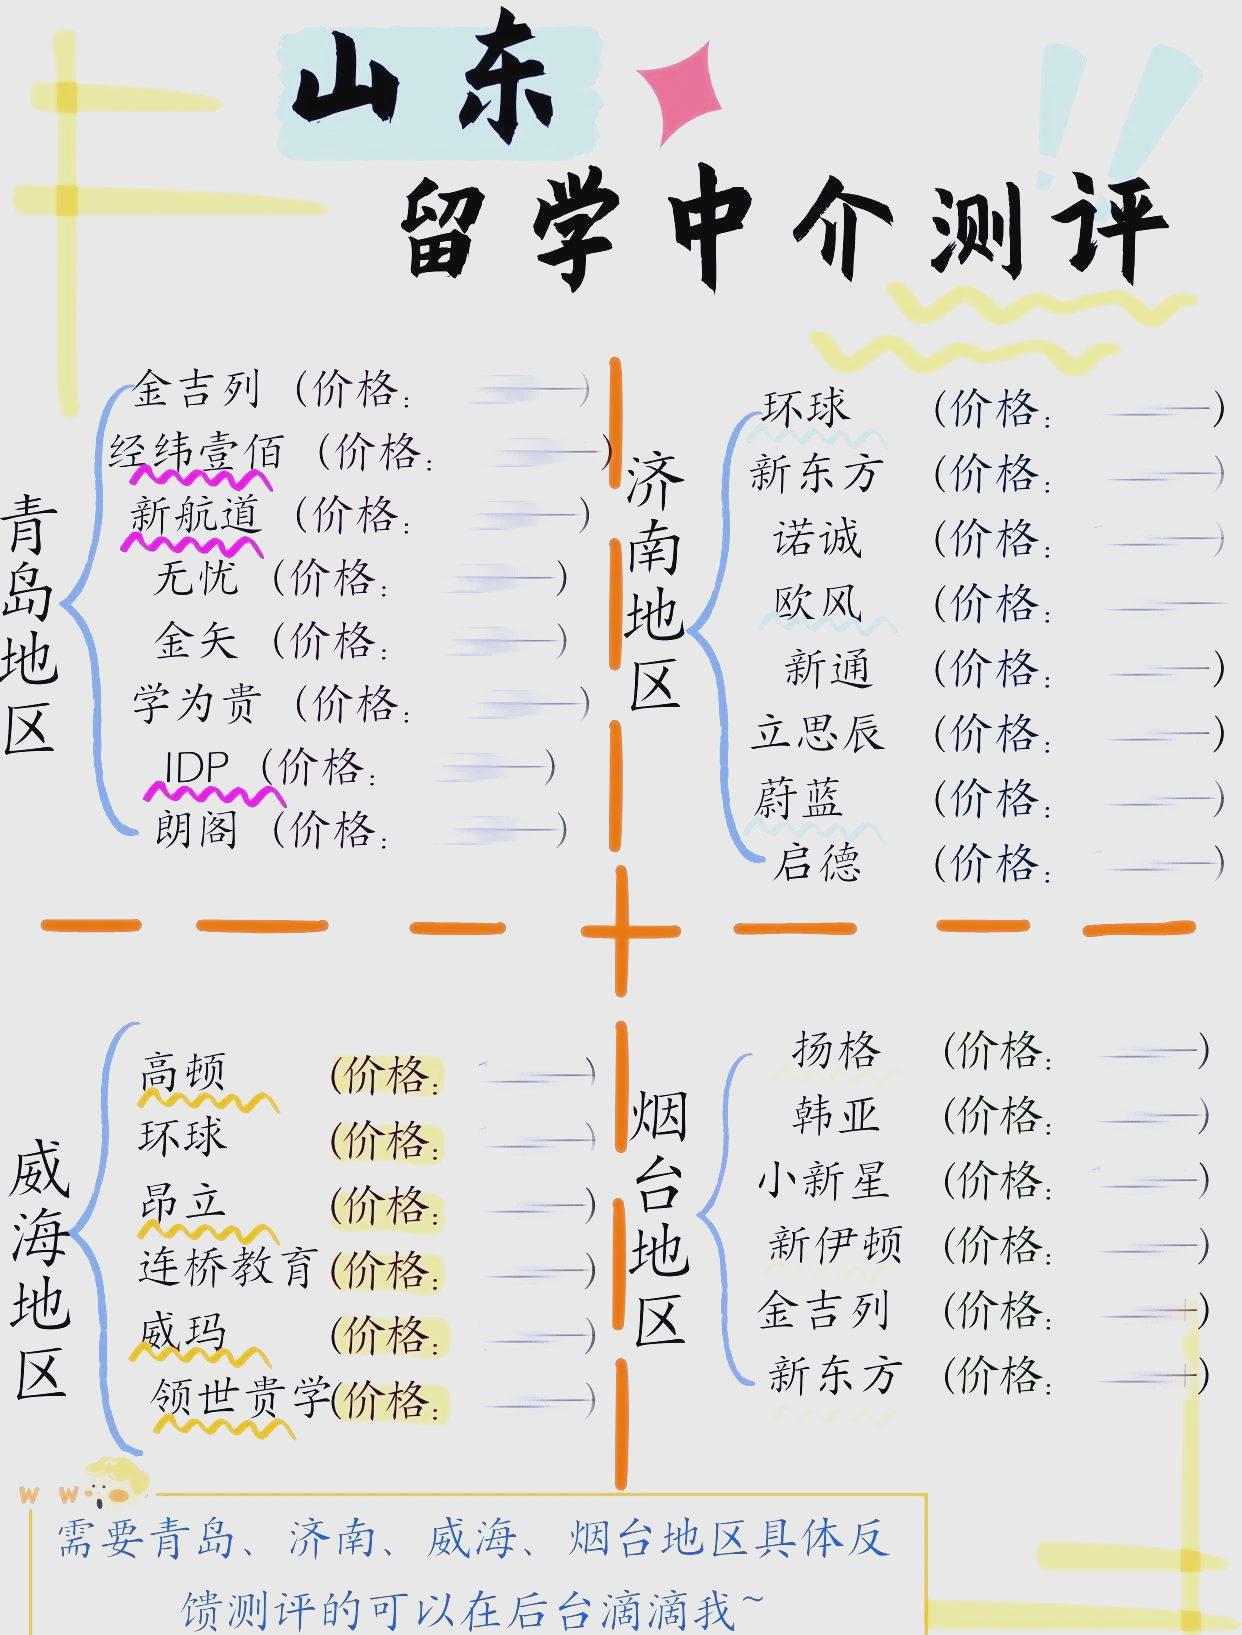 山东
留学中介测评
青岛地区
金吉列（价格：）
经纬壹佰（价格：）
新航道（价格：）
无忧（价格：）
金矢（价格：）
学为贵（价格：）
IDP（价格：）
朗阁（价格：）
济南地区
环球（价格：）
新东方（价格：）
诺诚（价格：）
欧风（价格：）
新通（价格：）
立思辰（价格：）
蔚蓝（价格：）
启德（价格：）
威海地区
高顿（价格：）
环球（价格：）
昂立（价格：）
连桥教育（价格：）
威玛（价格：）
领世贵学（价格：）
烟台地区
扬格（价格：）
韩亚（价格：）
小新星（价格：）
新伊顿（价格：）
金吉列（价格：）
新东方（价格：）
w w
需要青岛、济南、威海、烟台地区具体反
馈测评的可以在后台滴滴我~